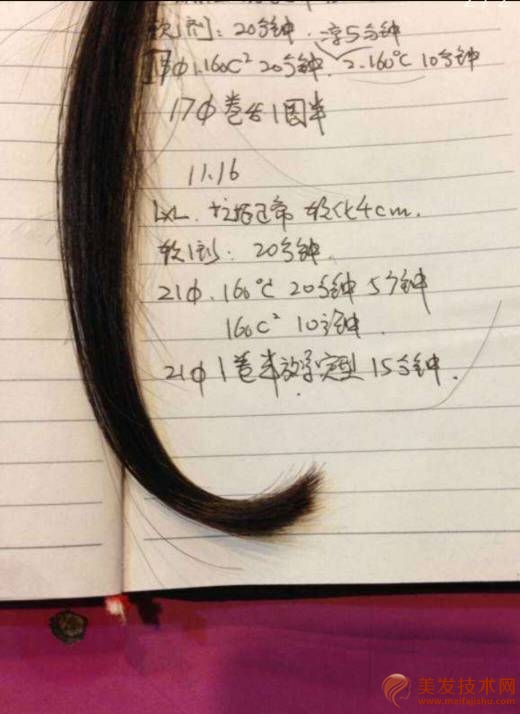 软1剂：20分钟．淳5分钟
17φ1.160C² 20分钟． 2.160℃ 10分钟
17φ卷合1圈半
11.16
软化4cm．
软1剂：20分钟．
21φ．160℃ 20分钟 5分钟
160C² 10分钟．
21φ1卷半 定型15分钟．
美发技术网
www.meifajishu.com